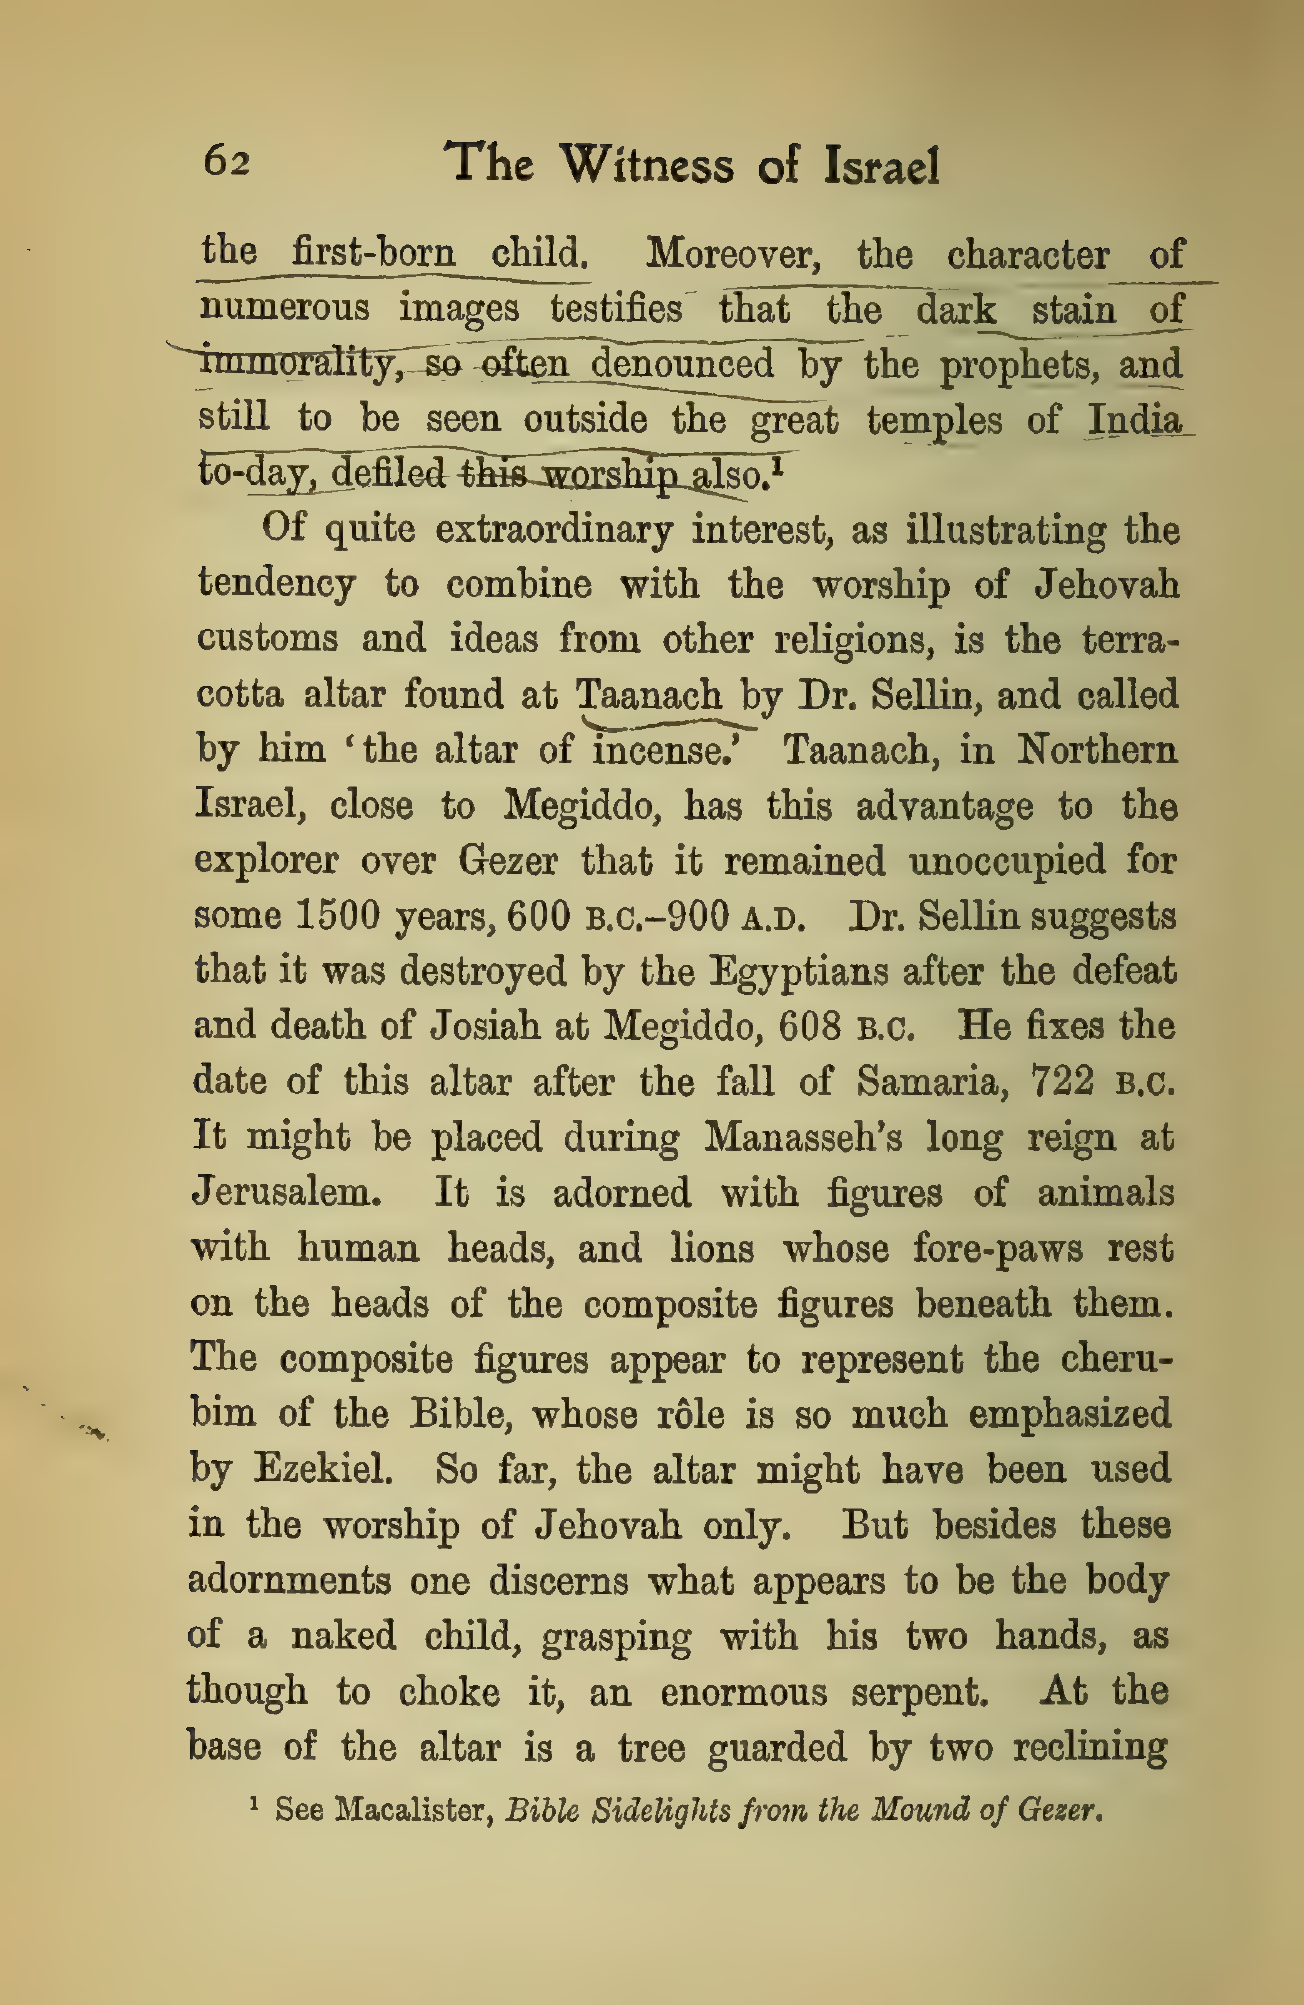 62 The Witness of Israel
the first-born child. Moreover, the character of
numerous images testifies that the dark stain of
immorality, so often denounced by the prophets, and
still to be seen outside the great temples of India
to-day, defiled this worship also.¹
Of quite extraordinary interest, as illustrating the
tendency to combine with the worship of Jehovah
customs and ideas from other religions, is the terra-
cotta altar found at Taanach by Dr. Sellin, and called
by him ‘the altar of incense.’ Taanach, in Northern
Israel, close to Megiddo, has this advantage to the
explorer over Gezer that it remained unoccupied for
some 1500 years, 600 B.C.–900 A.D. Dr. Sellin suggests
that it was destroyed by the Egyptians after the defeat
and death of Josiah at Megiddo, 608 B.C. He fixes the
date of this altar after the fall of Samaria, 722 B.C.
It might be placed during Manasseh’s long reign at
Jerusalem. It is adorned with figures of animals
with human heads, and lions whose fore-paws rest
on the heads of the composite figures beneath them.
The composite figures appear to represent the cheru-
bim of the Bible, whose rôle is so much emphasized
by Ezekiel. So far, the altar might have been used
in the worship of Jehovah only. But besides these
adornments one discerns what appears to be the body
of a naked child, grasping with his two hands, as
though to choke it, an enormous serpent. At the
base of the altar is a tree guarded by two reclining
¹ See Macalister, Bible Sidelights from the Mound of Gezer.